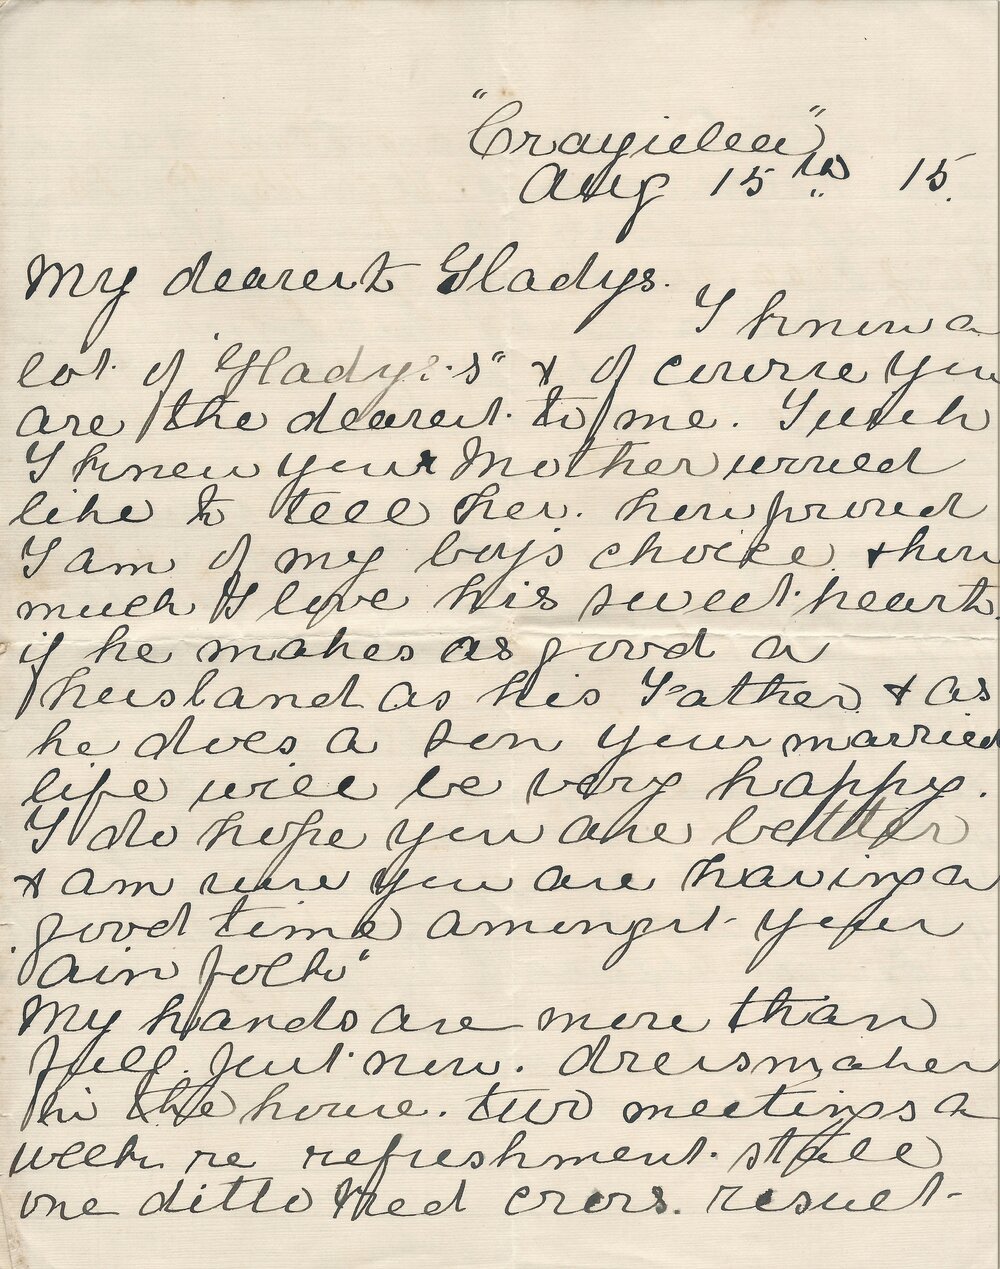 "Craigielea"
Aug 15th 15.
My dearest Gladys.
I know a
lot of "Gladys's" & of course you
are the dearest to me. I wish
I knew your Mother would
like to tell her. how proud
I am of my boy's choice. & how
much I love his sweet heart.
if he makes as good a
husband as his Father. & as
he does a son your married
life will be very happy.
I do hope you are better
& am sure you are having a
good time amongst your
"ain folk"
My hands are more than
full. just now. dressmaker
in the house. two meetings a
week. re refreshment. stall
one ditto Red cross. result-